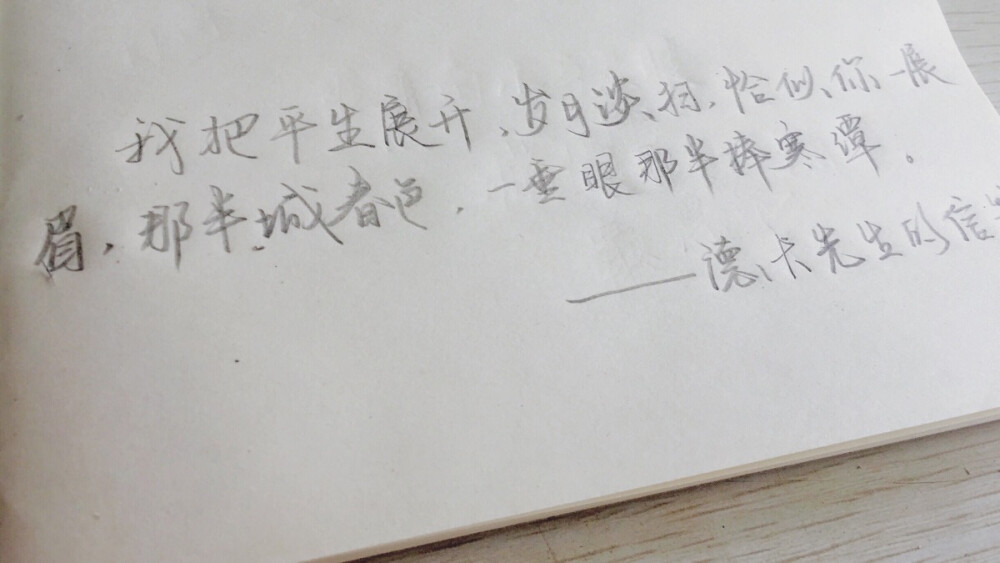 我把平生展开、岁月淡扫、恰似、你一展
眉，那半城春色、一垂眼那半捧寒潭。
——德卡先生的信